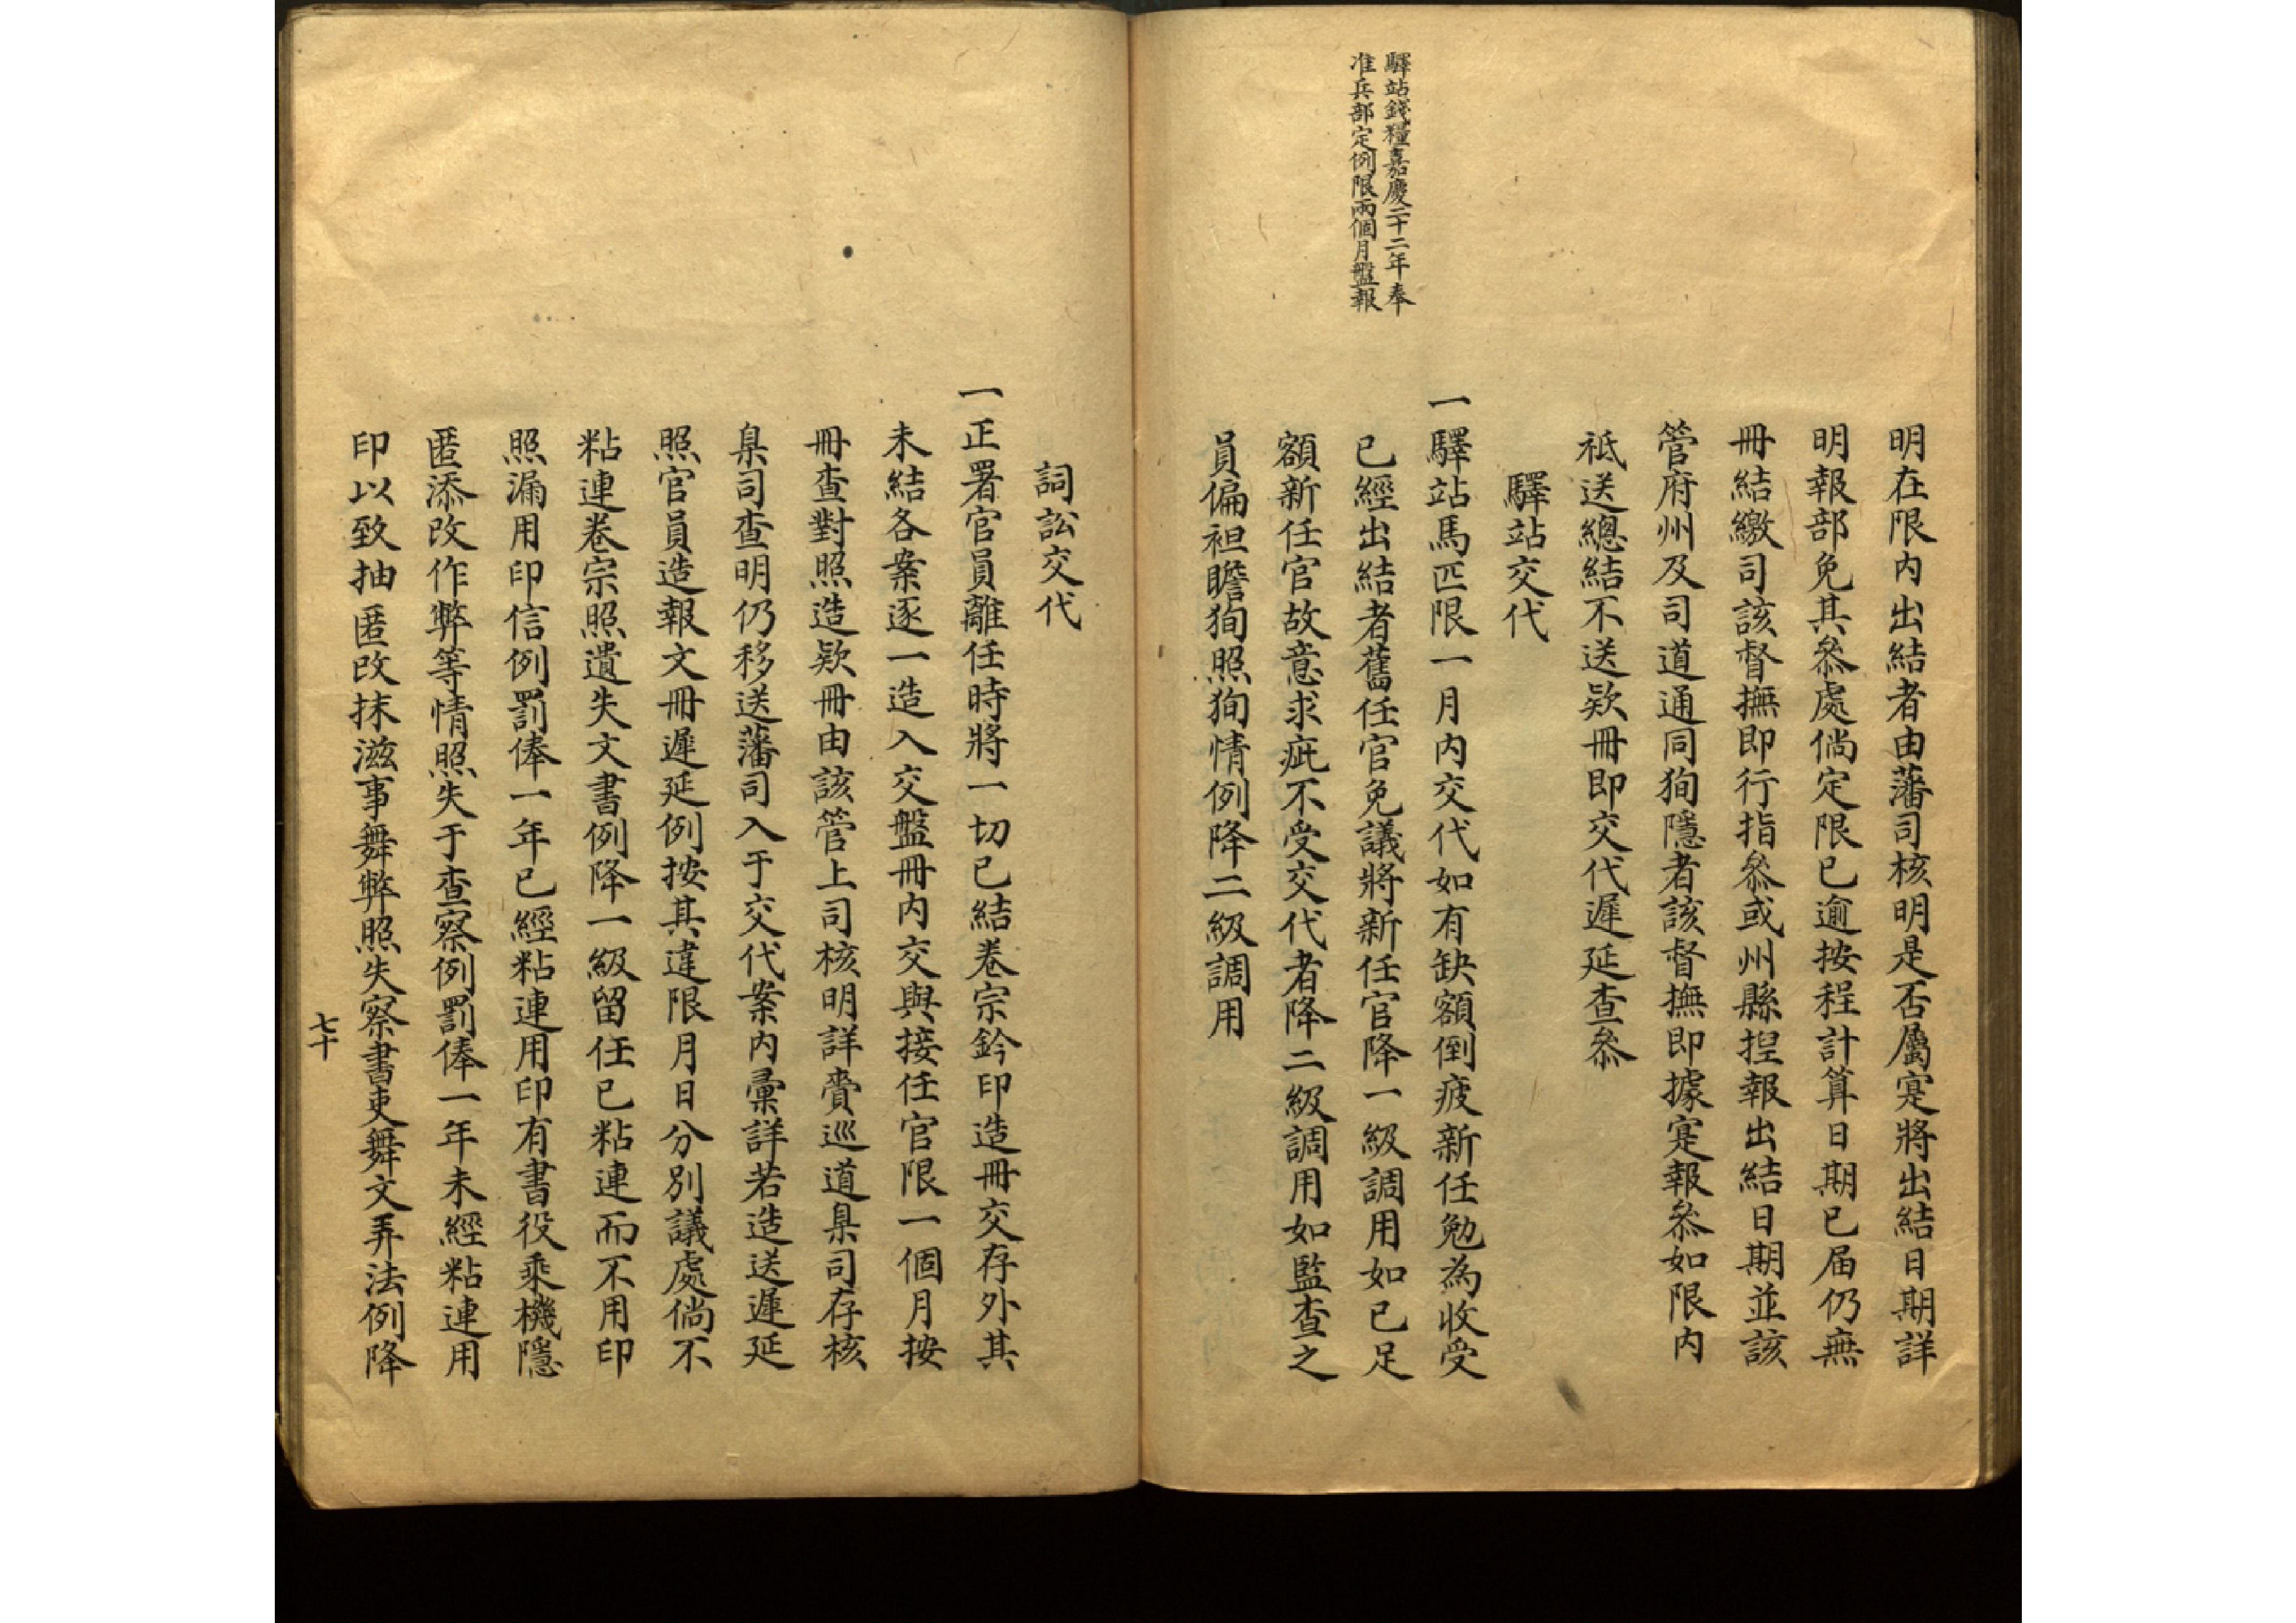 明在限内出結者由藩司核明是否屬寔將出結日期詳
明報部免其叅處倘定限已逾按程計算日期已届仍無
冊結繳司該督撫即行指叅或州縣捏報出結日期並該
管府州及司道通同狥隱者該督撫即據寔報叅如限内
祇送總結不送欵冊即交代遲延查叅
驛站交代
驛站錢糧嘉慶二十二年奉
准兵部定例限兩個月盤報
一驛站馬匹限一月内交代如有缺額倒疲新任勉為收受
已經出結者舊任官免議將新任官降一級調用如已足
額新任官故意求疵不受交代者降二級調用如監查之
員偏袒瞻狥照狥情例降二級調用
詞訟交代
一正署官員離任時將一切已結卷宗鈐印造冊交存外其
未結各案逐一造入交盤冊内交與接任官限一個月按
冊查對照造欵冊由該管上司核明詳賫巡道臬司存核
臬司查明仍移送藩司入于交代案内彙詳若造送遲延
照官員造報文冊遲延例按其違限月日分別議處倘不
粘連卷宗照遺失文書例降一級留任已粘連而不用印
照漏用印信例罰俸一年已經粘連用印有書役乘機隱
匿添改作弊等情照失于查察例罰俸一年未經粘連用
印以致抽匿改抹滋事舞弊照失察書吏舞文弄法例降
七十